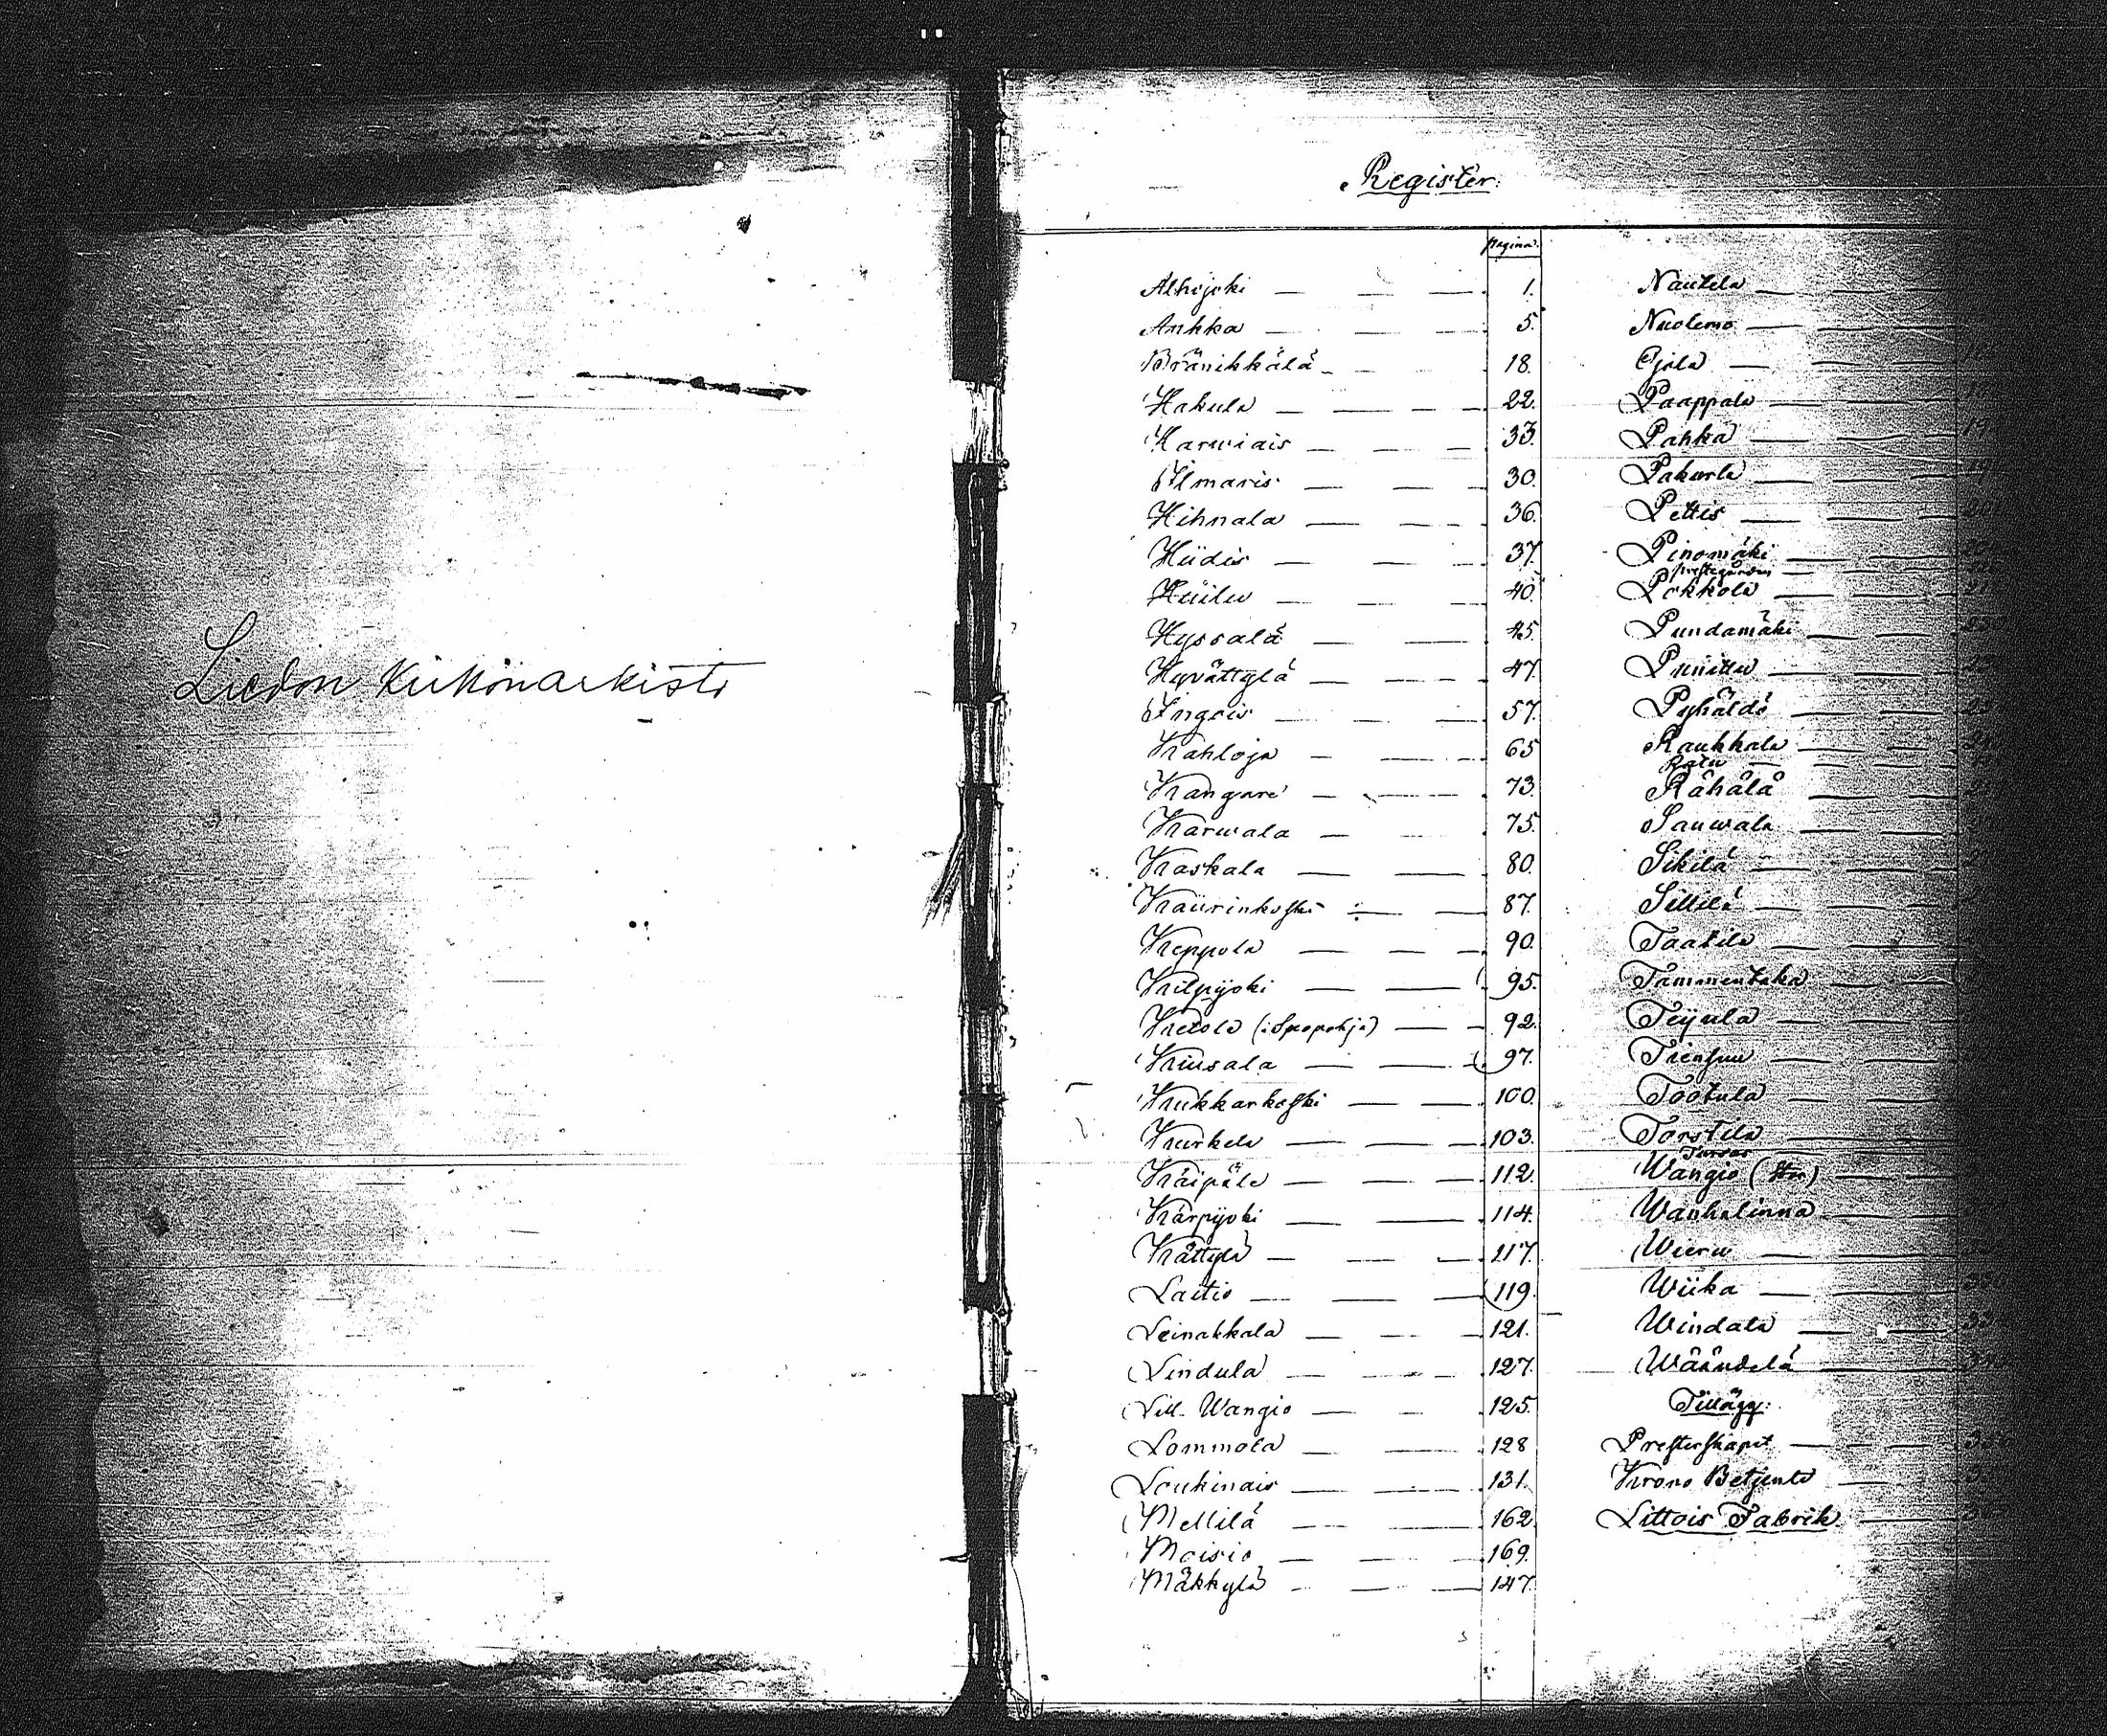 Liedon Kirkonarkisto
Register.
pagina.
Alhojoki 1.
Ankka 5.
Bränikkälä 18.
Hakula 22.
Harwiais 33.
Ilmaris 30.
Hihnala 36.
Hiidis 37.
Hüilu 40.
Hyssälä 45.
Hyvättylä 47.
Ingois 57.
Kahloja 65
Kangare 73.
Karwala 75.
Kaskala 80.
Kaurinkoski 87.
Keppola 90.
Kilpijoki 95.
Ketola (i Spopohja) 92.
Kiusala 97.
Kukkarkoski 100.
Kurkela 103.
Käipälä 112.
Kärpijoki 114.
Kättylä 117.
Laitio 119.
Leinakkala 121.
Lindula 127.
Lill-Wangio 125.
Lommola 128
Loukinais 131.
Mellilä 162
Moisio 169.
Mäkkylä 147.
Nautela
Nuolemo
Ojola
Paappala
Pahka
Pakurla
Pettis
Pinomäki
Prestegården
Pokkola
Pundamäki
Puuittu
Pyhäldö
Raukkala
Ratu
Rähälä
Sauwala
Sikilä
Sillilä
Taatila
Tammentaka
Teijula
Trensuu
Tootula
Torstila
Wangio (Stor)
Wanhalinna
Wieru
Wiika
Windala
Wääntelä
Tillägg:
Presterskapet
Krono Betjente
Littois Fabrik